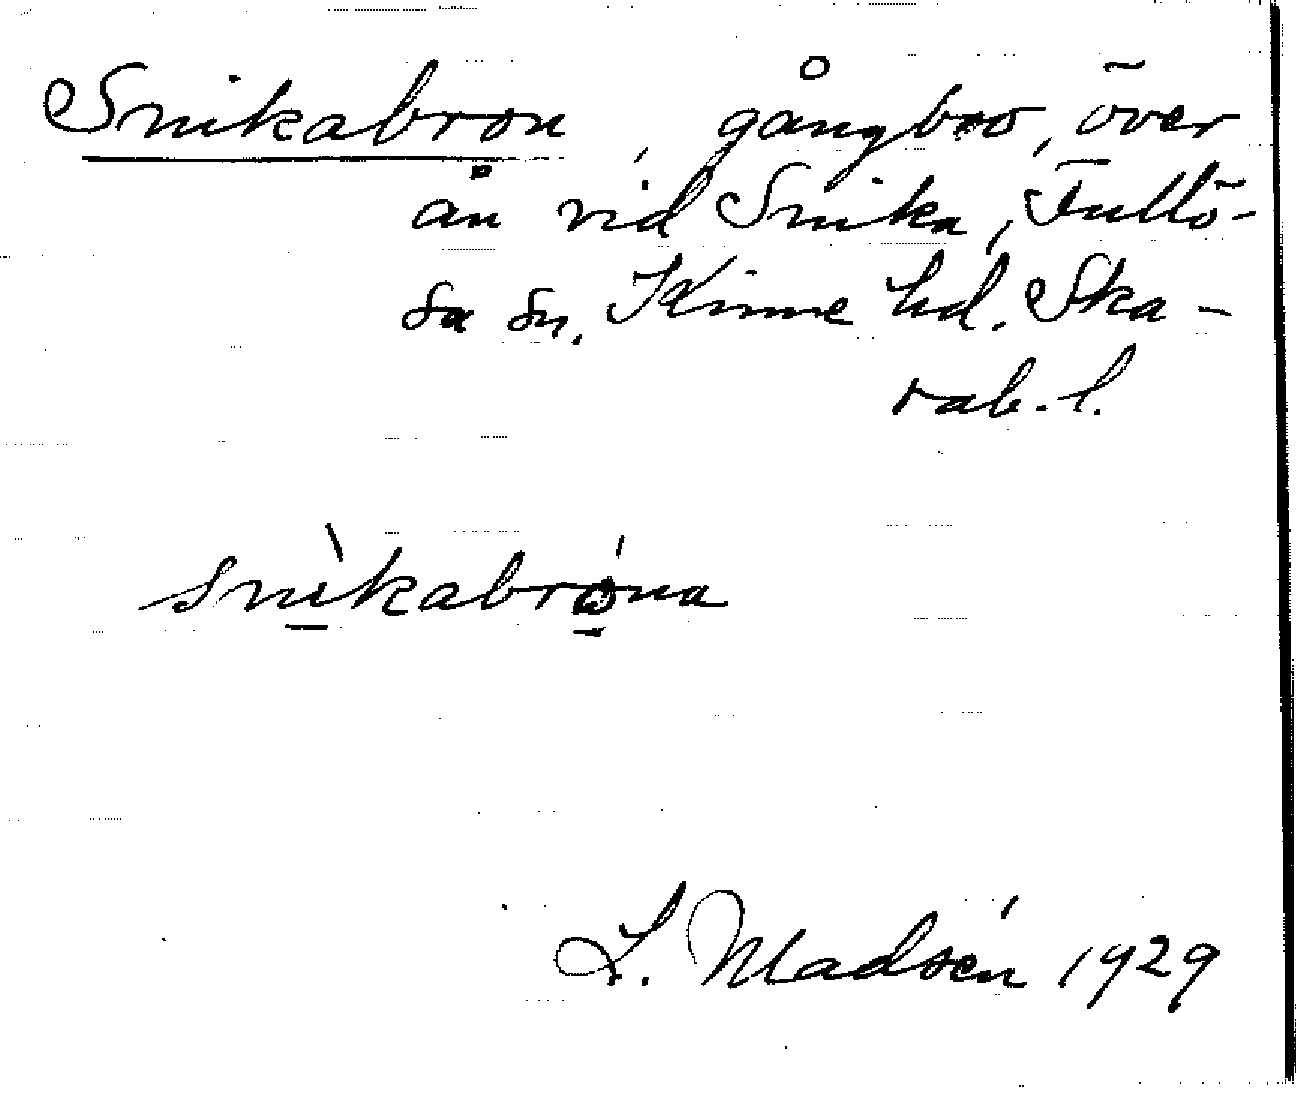 Snikabron, gångbro, över
ån vid Snika, Fullö-
sa sn. Kinne hd. Ska-
rab. l.
snìkabróna
L. Madsén 1929